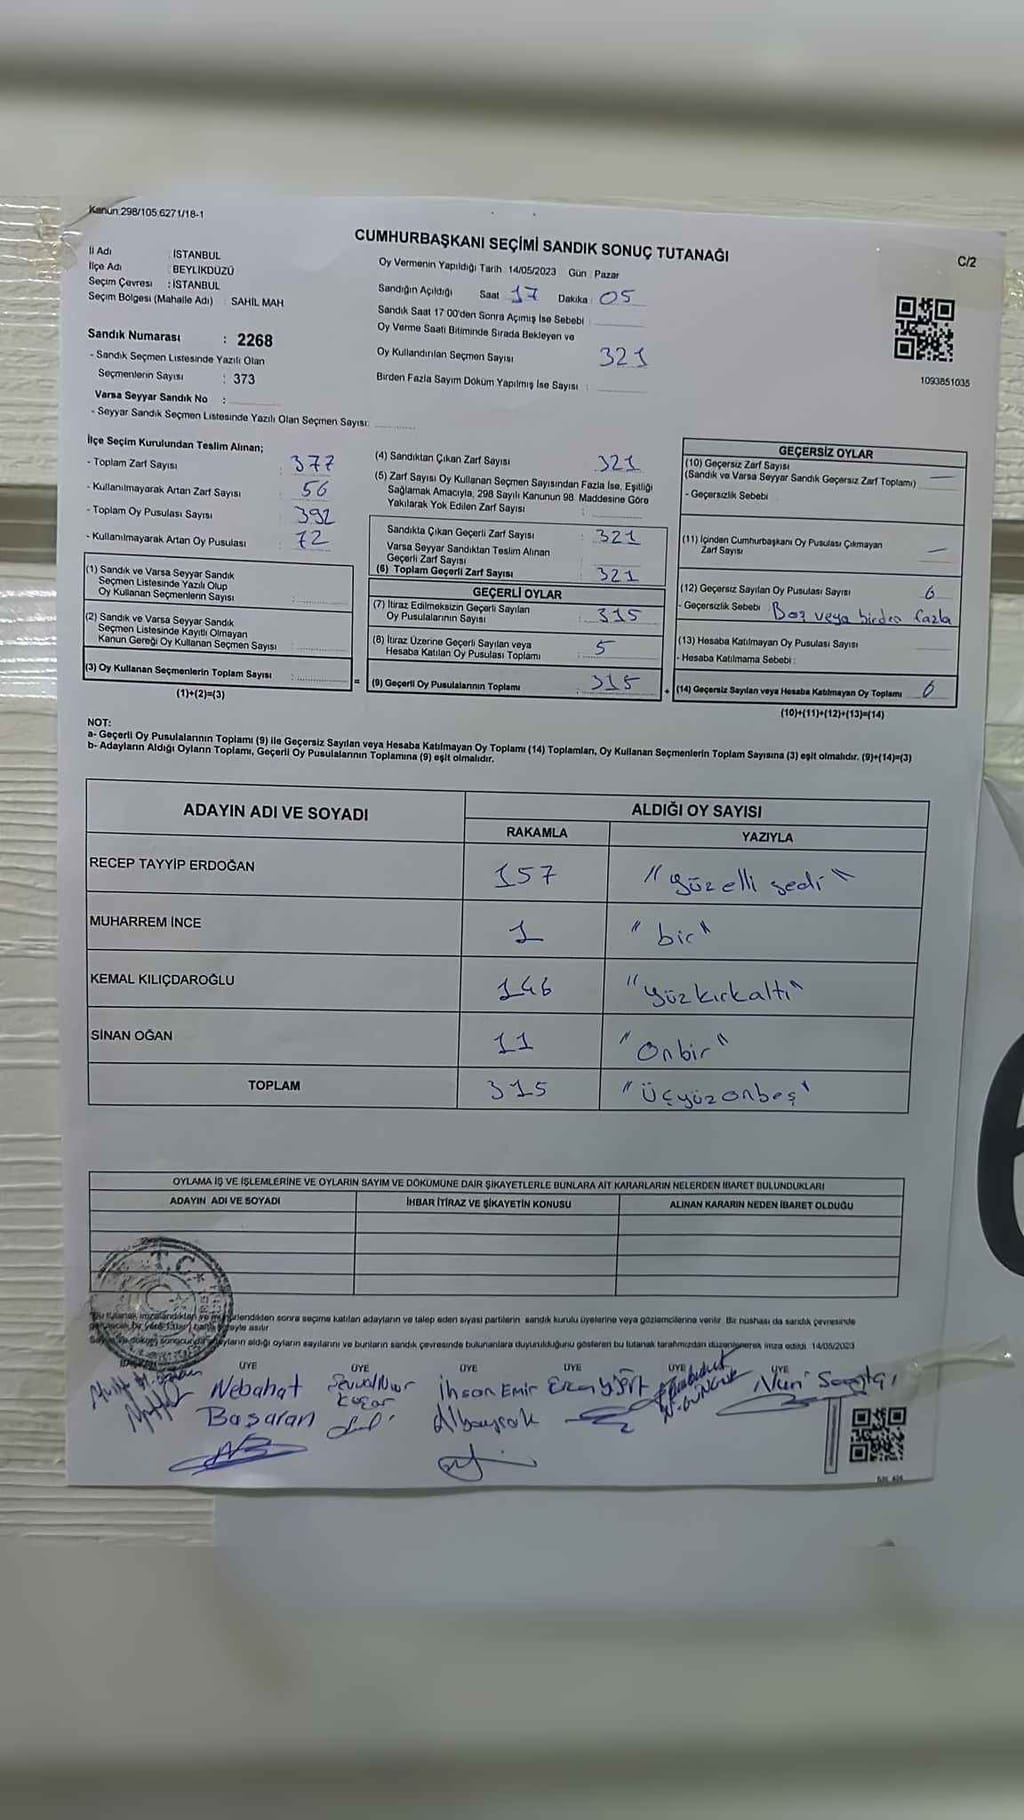 Kanun:298/105,6271/18-1
CUMHURBAŞKANI SEÇİMİ SANDIK SONUÇ TUTANAĞI
C/2
İl Adı : İSTANBUL
İlçe Adı : BEYLİKDÜZÜ
Seçim Çevresi : İSTANBUL
Seçim Bölgesi (Mahalle Adı) : SAHİL MAH
Sandık Numarası : 2268
- Sandık Seçmen Listesinde Yazılı Olan
Seçmenlerin Sayısı : 373
Varsa Seyyar Sandık No :
- Seyyar Sandık Seçmen Listesinde Yazılı Olan Seçmen Sayısı:
Oy Vermenin Yapıldığı Tarih: 14/05/2023 Gün : Pazar
Sandığın Açıldığı Saat 17 Dakika 05
Sandık Saat 17:00'den Sonra Açımış İse Sebebi :
Oy Verme Saati Bitiminde Sırada Bekleyen ve
Oy Kullandırılan Seçmen Sayısı 321
Birden Fazla Sayım Döküm Yapılmış İse Sayısı :
1093851035
İlçe Seçim Kurulundan Teslim Alınan;
- Toplam Zarf Sayısı : 377
- Kullanılmayarak Artan Zarf Sayısı : 56
- Toplam Oy Pusulası Sayısı : 392
- Kullanılmayarak Artan Oy Pusulası : 72
(1) Sandık ve Varsa Seyyar Sandık
Seçmen Listesinde Yazılı Olup
Oy Kullanan Seçmenlerin Sayısı :
(2) Sandık ve Varsa Seyyar Sandık
Seçmen Listesinde Kayıtlı Olmayan
Kanun Gereği Oy Kullanan Seçmen Sayısı :
(3) Oy Kullanan Seçmenlerin Toplam Sayısı :
(1)+(2)=(3)
=
(4) Sandıktan Çıkan Zarf Sayısı : 321
(5) Zarf Sayısı Oy Kullanan Seçmen Sayısından Fazla İse, Eşitliği
Sağlamak Amacıyla, 298 Sayılı Kanunun 98. Maddesine Göre
Yakılarak Yok Edilen Zarf Sayısı :
Sandıkta Çıkan Geçerli Zarf Sayısı : 321
Varsa Seyyar Sandıktan Teslim Alınan
Geçerli Zarf Sayısı :
(6) Toplam Geçerli Zarf Sayısı : 321
GEÇERLİ OYLAR
(7) İtiraz Edilmeksizin Geçerli Sayılan
Oy Pusulalarının Sayısı : 315
(8) İtiraz Üzerine Geçerli Sayılan veya
Hesaba Katılan Oy Pusulası Toplamı : 5
(9) Geçerli Oy Pusulalarının Toplamı : 315
+
GEÇERSİZ OYLAR
(10) Geçersiz Zarf Sayısı
(Sandık ve Varsa Seyyar Sandık Geçersiz Zarf Toplamı) : —
- Geçersizlik Sebebi :
(11) İçinden Cumhurbaşkanı Oy Pusulası Çıkmayan
Zarf Sayısı : —
(12) Geçersiz Sayılan Oy Pusulası Sayısı : 6
- Geçersizlik Sebebi : Boş veya birden fazla
(13) Hesaba Katılmayan Oy Pusulası Sayısı :
- Hesaba Katılmama Sebebi :
(14) Geçersiz Sayılan veya Hesaba Katılmayan Oy Toplamı : 6
(10)+(11)+(12)+(13)=(14)
NOT:
a- Geçerli Oy Pusulalarının Toplamı (9) ile Geçersiz Sayılan veya Hesaba Katılmayan Oy Toplamı (14) Toplamları, Oy Kullanan Seçmenlerin Toplam Sayısına (3) eşit olmalıdır. (9)+(14)=(3)
b- Adayların Aldığı Oyların Toplamı, Geçerli Oy Pusulalarının Toplamına (9) eşit olmalıdır.
ADAYIN ADI VE SOYADI
ALDIĞI OY SAYISI
RAKAMLA YAZIYLA
RECEP TAYYİP ERDOĞAN 157 "yüzelli yedi"
MUHARREM İNCE 1 "bir"
KEMAL KILIÇDAROĞLU 146 "yüzkırkaltı"
SİNAN OĞAN 11 "Onbir"
TOPLAM 315 "Üçyüzonbeş"
OYLAMA İŞ VE İŞLEMLERİNE VE OYLARIN SAYIM VE DÖKÜMÜNE DAİR ŞİKAYETLERLE BUNLARA AİT KARARLARIN NELERDEN İBARET BULUNDUKLARI
ADAYIN ADI VE SOYADI İHBAR İTİRAZ VE ŞİKAYETİN KONUSU ALINAN KARARIN NEDEN İBARET OLDUĞU
T.C.
sonra seçime katılan adayların ve talep eden siyasi partilerin sandık kurulu üyelerine veya gözlemcilerine verilir. Bir nüshası da sandık çevresinde
aldığı oyların sayılarını ve bunların sandık çevresinde bulunanlara duyurulduğunu gösteren bu tutanak tarafımızdan düzenlenerek imza edildi. 14/05/2023
ÜYE ÜYE ÜYE ÜYE ÜYE ÜYE
Nebahat
Başaran
İhsan Emir
Albayrak
Nuri